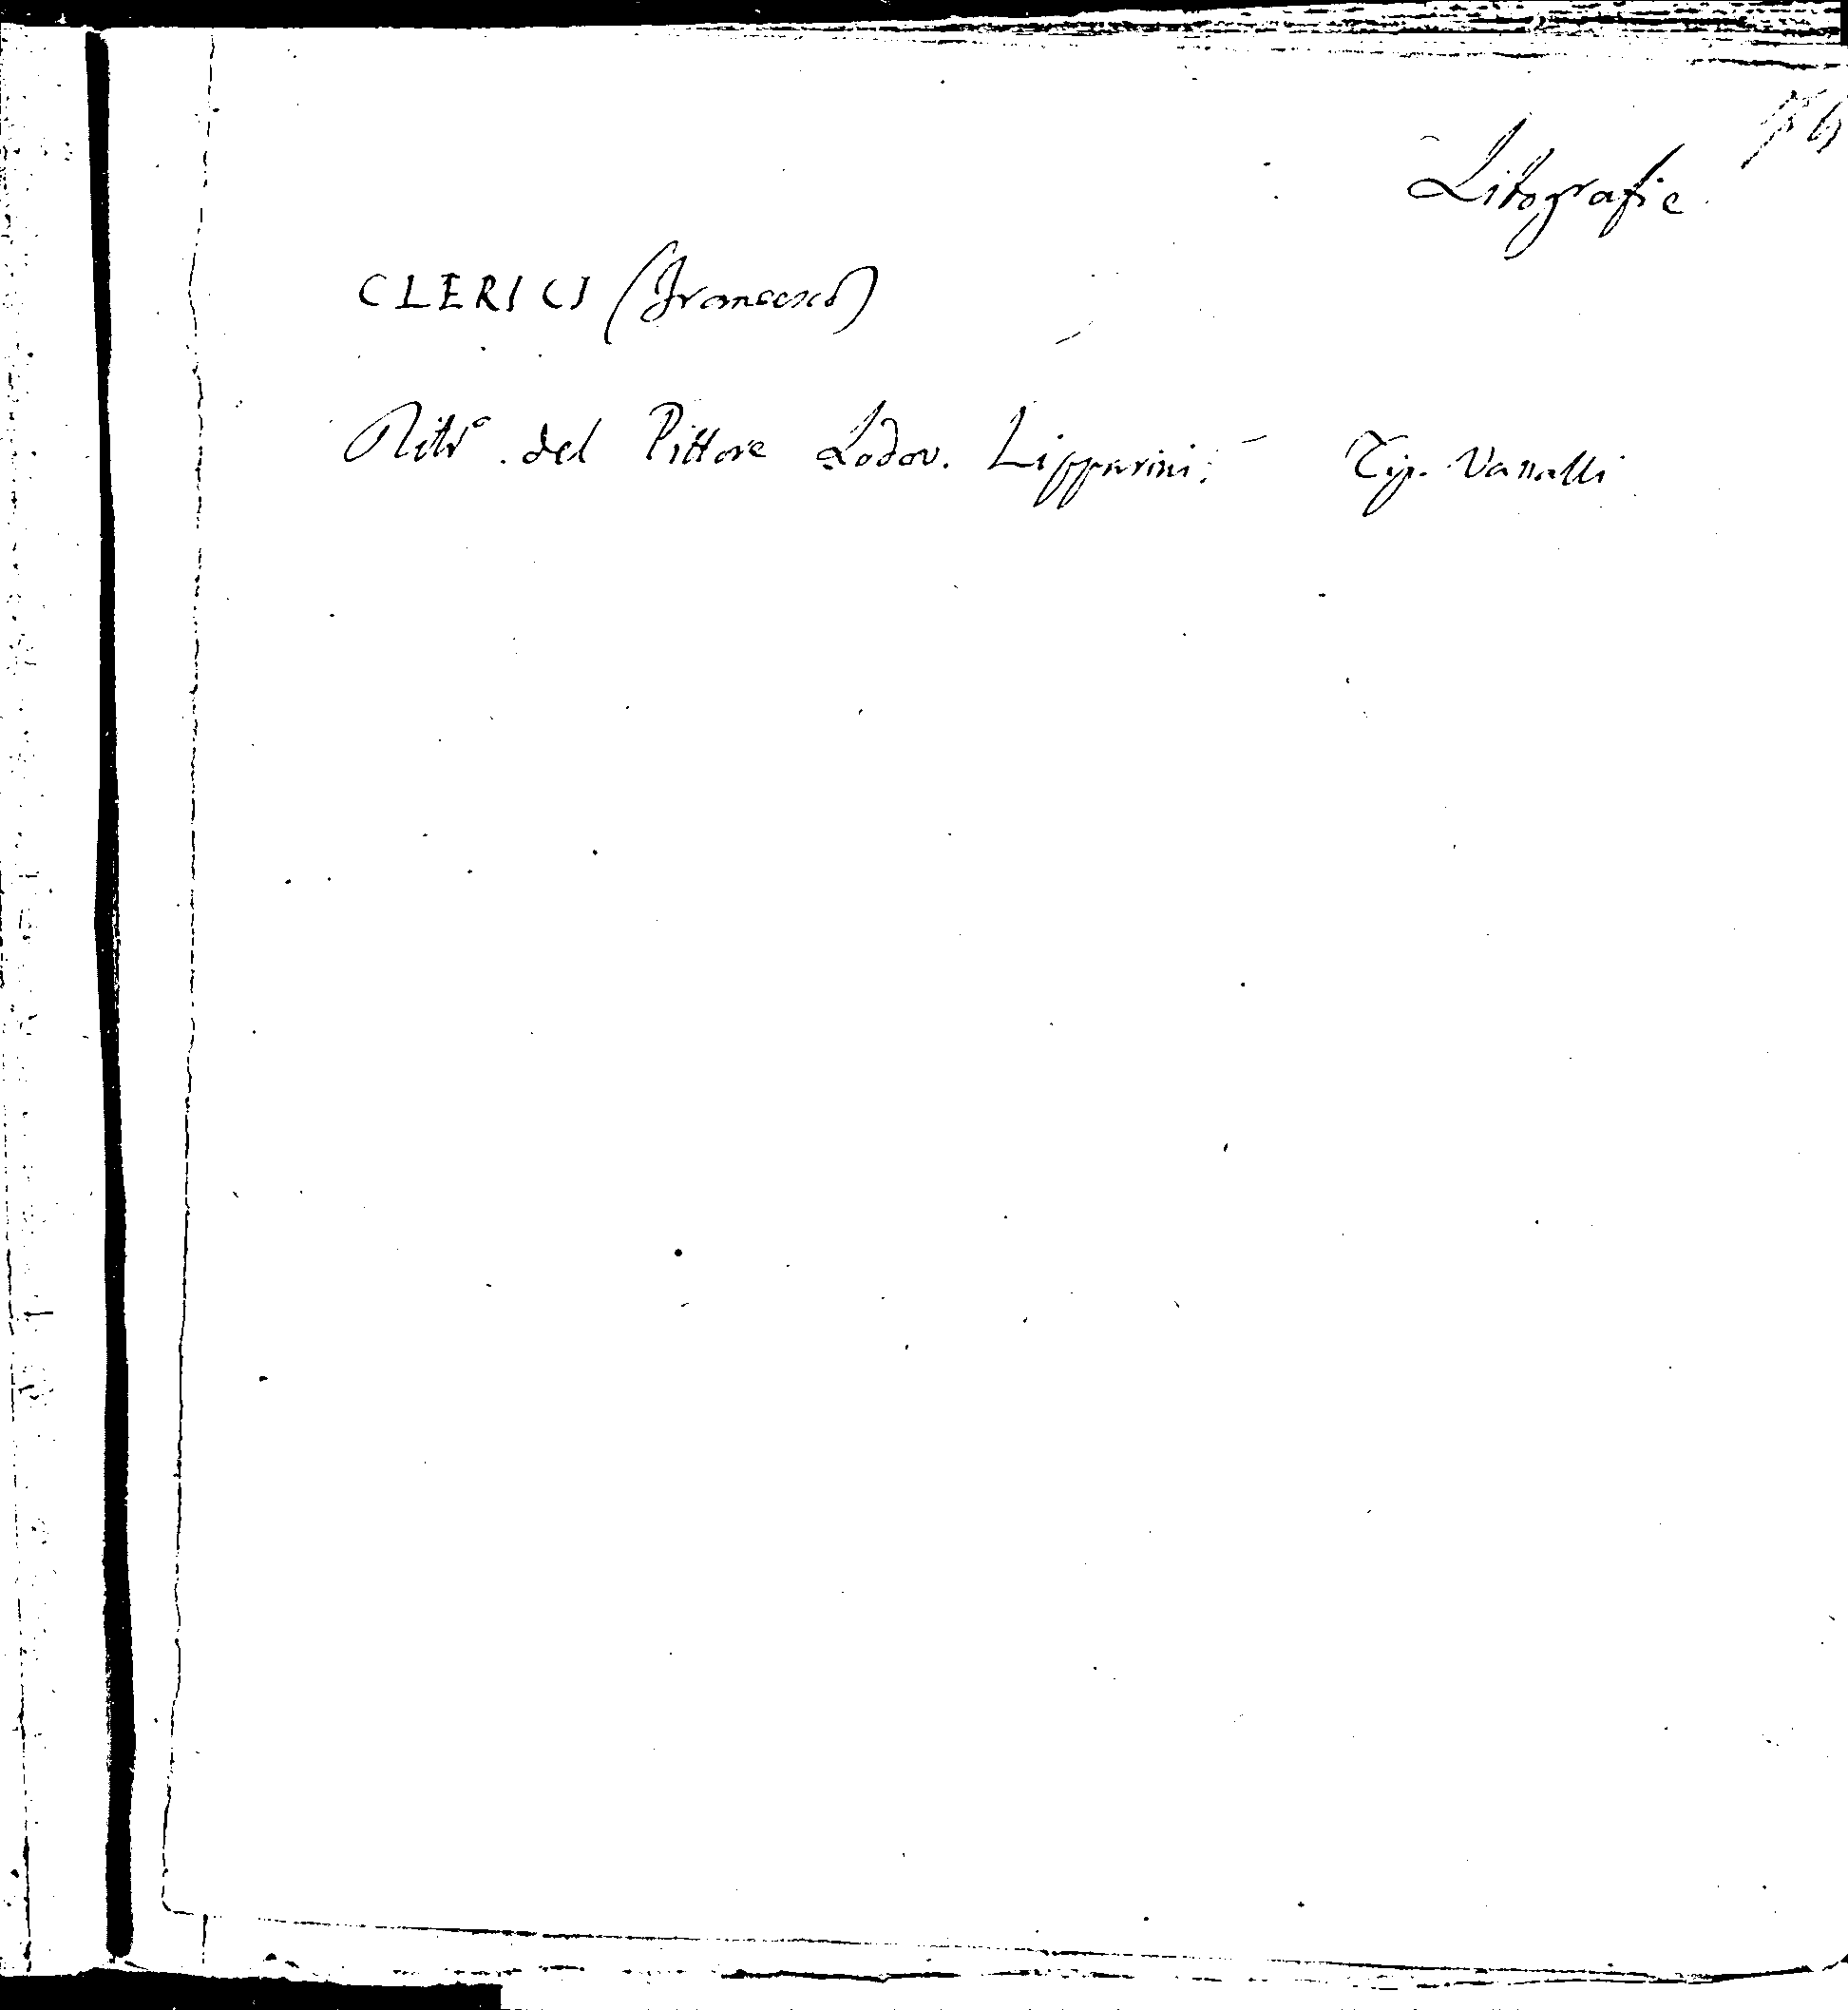 Litografie
CLERICI (Francesco)
Ritr.º del Pittore Lodov. Lipparini. — Tip. Vassalli